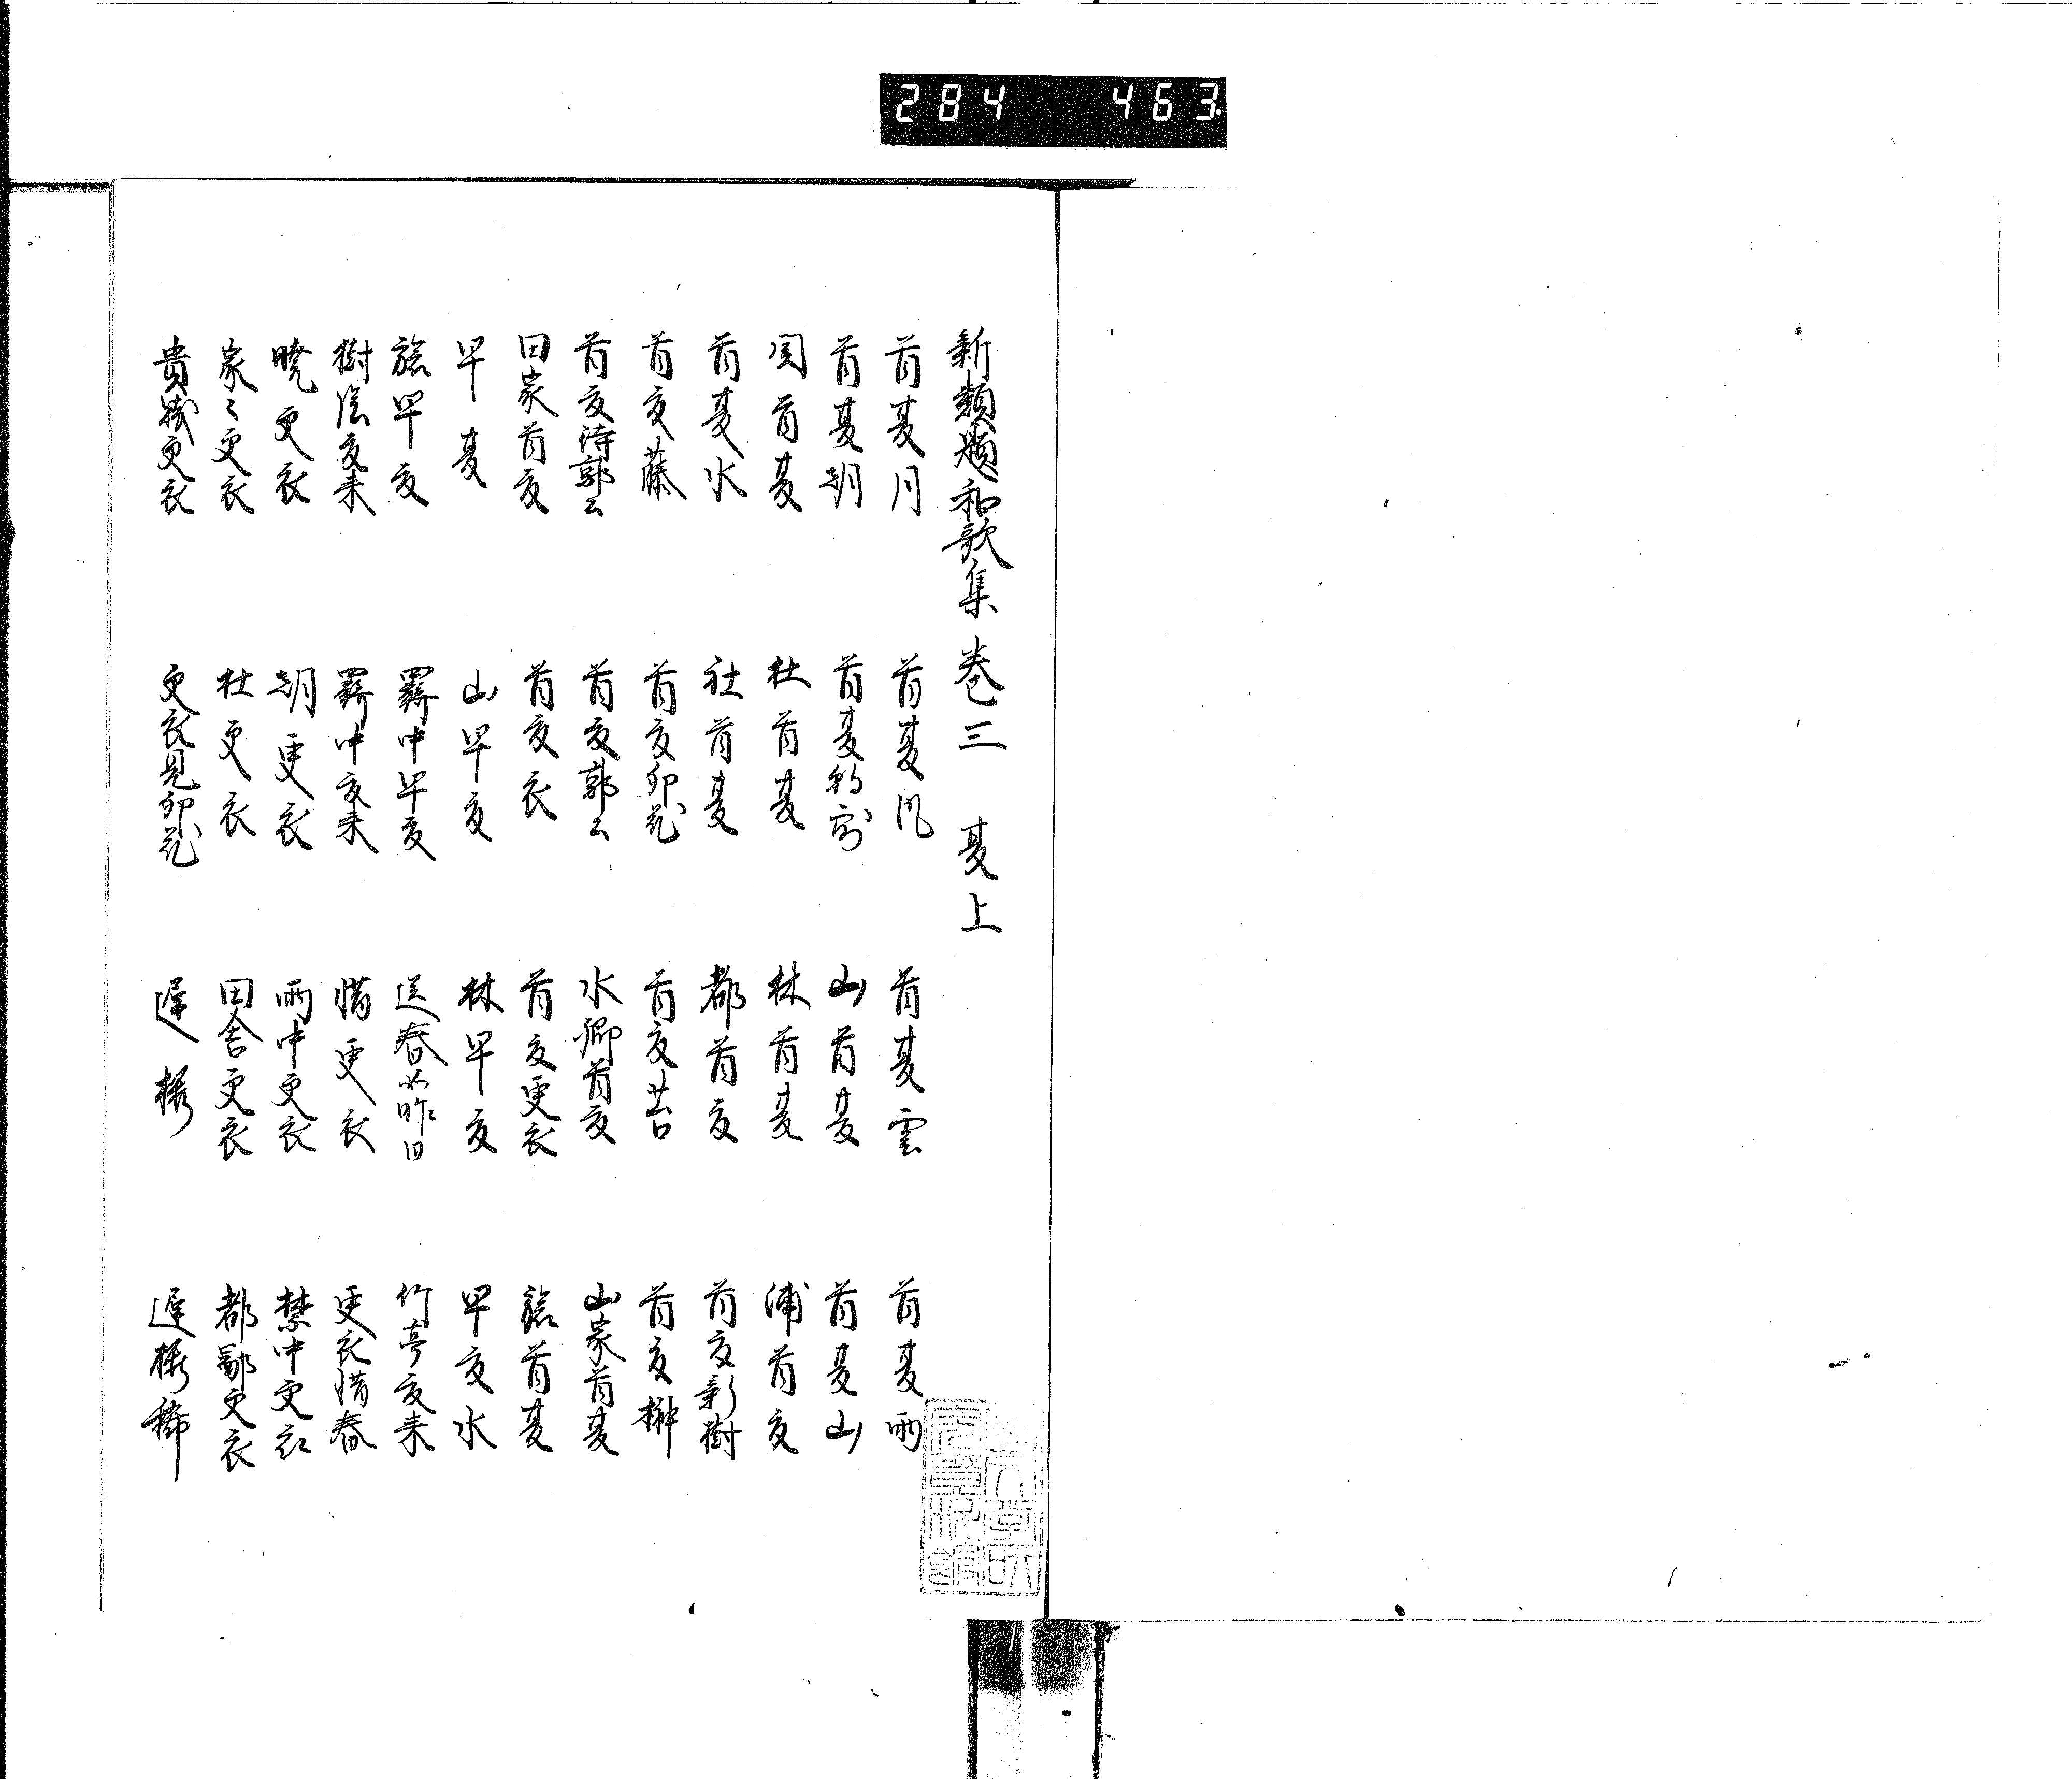 284 463
新類題和歌集 巻三 夏上
首夏月 首夏風 首夏雲 首夏雨
首夏朝 首夏 山首夏 首夏山
関首夏 杜首夏 林首夏 浦首夏
首夏水 社首夏 都首夏 首夏新樹
首夏藤 首夏卯花 首夏苔 首夏榊
首夏待郭公 首夏郭公 水郷首夏 山家首夏
田家首夏 首夏衣 首夏更衣 旅首夏
早夏 山早夏 林早夏 早夏水
旅早夏 羇中早夏 送春如昨日 竹亭夏来
樹陰夏来 羇中夏来 惜更衣 更衣惜春
暁更衣 朝更衣 雨中更衣 禁中更衣
家々更衣 杜更衣 田舎更衣 都鄙更衣
貴賤更衣 更衣見卯花 遅桜 遅桜稀